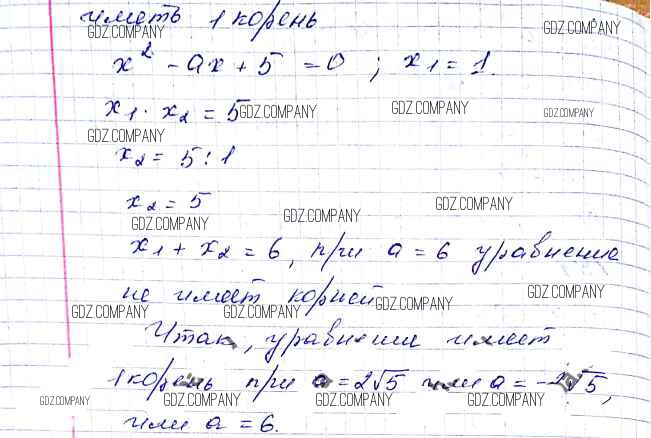 иметь 1 корень
GDZ.COMPANY GDZ.COMPANY
x² - ax + 5 = 0 ; x₁ = 1.
x₁ · x₂ = 5 GDZ.COMPANY GDZ.COMPANY GDZ.COMPANY
GDZ.COMPANY
x₂ = 5 : 1
x₂ = 5
GDZ.COMPANY GDZ.COMPANY GDZ.COMPANY
x₁ + x₂ = 6, при a = 6 уравнение
не имеет корней GDZ.COMPANY GDZ.COMPANY
GDZ.COMPANY GDZ.COMPANY
Итак, уравнение имеет
1 корень при a = 2√5 или a = -2√5,
GDZ.COMPANY GDZ.COMPANY GDZ.COMPANY GDZ.COMPANY
или a = 6.